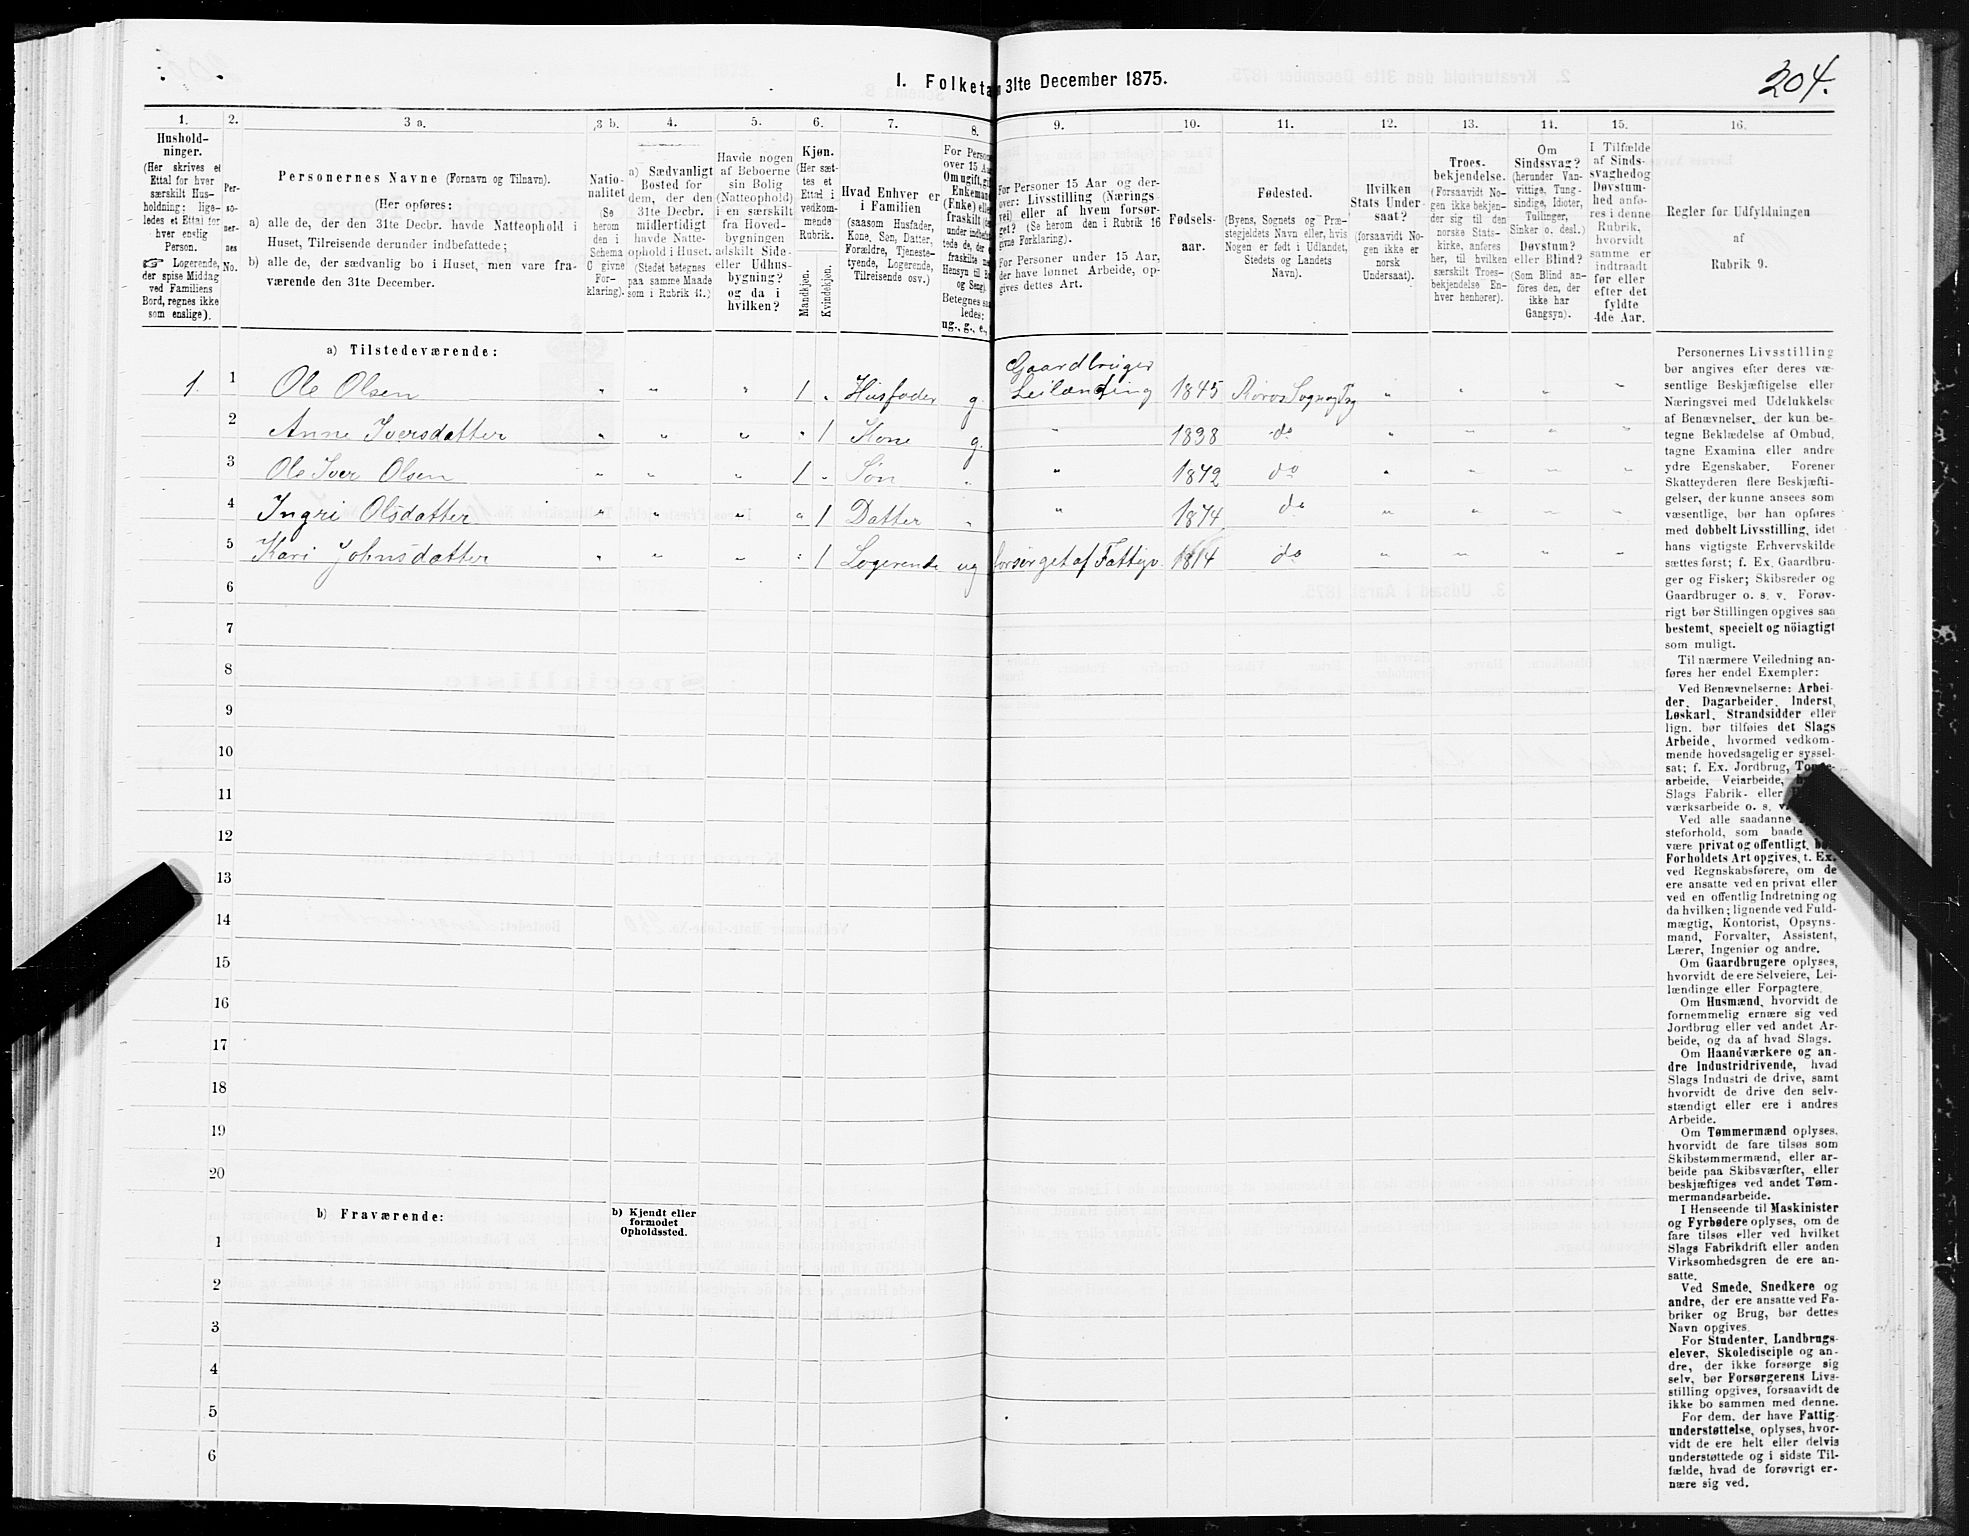 204.
I. Folketæ 31te December 1875.
1. 2. 3 a. 3 b. 4. 5. 6. 7. 8. 9. 10. 11. 12. 13. 14. 15. 16.
Hushold-
ninger.
(Her skrives et
Ettal for hver
særskilt Hus-
holdning: lige-
ledes et Ettal for
hver enslig
Person.
☞ Logerende,
der spise Middag
ved Familiens
Bord, regnes ikke
som enslige).
Per-
so-
ner-
nes
No.
Personernes Navne (Fornavn og Tilnavn).
(Her opføres:
a) alle de, der den 31te Decbr. havde Natteophold i
Huset, Tilreisende derunder indbefattede;
b) alle de, der sædvanlig bo i Huset, men vare fra-
værende den 31te December.
Natio-
nalitet
(Se
herom
den i
Schema
O givne
For-
klaring).
a) Sædvanligt
Bosted for
dem, der den
31te Decbr.
midlertidigt
havde Natte-
ophold i Huset.
(Stedet betegnes
paa samme Maade
som i Rubrik 11.)
Havde nogen
af Beboerne
sin Bolig
(Natteophold)
i en særskilt
fra Hoved-
bygningen
adskilt Side-
eller Udhus-
bygning?
og da i
hvilken?
Kjøn.
(Her sæt-
tes et
Ettal i
vedkom-
mende
Rubrik.
Mandkjøn.
Kvindekjøn.
Hvad Enhver er
i Familien
(saasom Husfader,
Kone, Søn, Datter,
Forældre, Tjeneste-
tyende, Logerende,
Tilreisende osv.)
For Person
over 15 Aar
Om ugift, gift
Enkemand
(Enke) eller
fraskilt
Betegnes saa
ledes:
ug., g., e.,
For Personer 15 Aar og der-
over: Livsstilling (Nærings-
vei) eller af hvem forsør-
get? (Se herom den i Rubrik 16
givne Forklaring).
For Personer under 15 Aar,
der have lønnet Arbeide, op-
gives dettes Art.
Fødsels-
aar.
Fødested.
(Byens, Sognets og Præ-
stegjeldets Navn eller, hvis
Nogen er født i Udlandet,
Stedets og Landets
Navn).
Hvilken
Stats Under-
saat?
(forsaavidt No-
gen ikke er
norsk
Undersaat).
Troes-
bekjendelse.
(Forsaavidt No-
gen ikke bekjen-
der sig til den
norske Stats-
kirke, anføres
her, til hvilken
særskilt Troes-
bekjendelse En-
hver henhører).
Om
Sindssvag?
(herunder Van-
vittige, Tung-
sindige, Idioter,
Tullinger,
Sinker o. desl.)
Døvstum?
eller Blind?
(Som Blind an-
føres den, der
ikke har
Gangsyn).
I Tilfælde
af Sinds-
svaghed og
Døvstum-
hed anfø-
res i denne
Rubrik,
hvorvidt
samme er
indtraadt
før eller
efter det
fyldte
4de Aar.
Regler for Udfyldningen
af
Rubrik 9.
a) Tilstedeværende:
Gaardbruger
1. 1 Ole Olsen " " " 1 " Husfader g. Leilænding 1845 Røros Sogn og Prg " " " "
2 Anne Iversdatter " " " " 1 Kone g. " 1838 do " " " "
3 Ole Iver Olsen " " " 1 " Søn " " 1872 do " " " "
4 Ingri Olsdatter " " " " 1 Datter " " 1874 do " " " "
5 Kari Johnsdatter " " " " 1 Logerende ug forsørget af Fattigv. 1814 do " " " "
6
7
8
9
10
11
12
13
14
15
16
17
18
19
20
b) Fraværende:
b) Kjendt eller
formodet
Opholdssted.
1
2
3
4
5
6
Personernes Livsstilling
bør angives efter deres væ-
sentlige Beskjæftigelse eller
Næringsvei med Udelukkelse
af Benævnelser, der kun be-
tegne Beklædelse af Ombud,
tagne Examina eller andre
ydre Egenskaber. Forener
Skatteyderen flere Beskjæfti-
gelser, der kunne ansees som
væsentlige, bør han opføres
med dobbelt Livsstilling, idet
hans vigtigste Erhvervskilde
sættes først; f. Ex. Gaardbru-
ger og Fisker; Skibsreder og
Gaardbruger o. s. v. Forøv-
rigt bør Stillingen opgives saa
bestemt, specielt og nöiagtigt
som muligt.
Til nærmere Veiledning an-
føres her endel Exempler:
Ved Benævnelserne: Arbei-
der, Dagarbeider, Inderst,
Løskarl, Strandsidder eller
lign. bør tilføies det Slags
Arbeide, hvormed vedkom-
mende hovedsagelig er syssel-
sat; f. Ex. Jordbrug,
arbeide, Veiarbeide,
Slags Fabrik- eller
værksarbeide o. s. v.
Ved alle saadanne
steforhold, som baade
være privat og offentligt,
Forholdets Art opgives, t. Ex.
ved Regnskabsførere, om de
ere ansatte ved en privat eller
ved en offentlig Indretning og
da hvilken; lignende ved Fuld-
mægtig, Kontorist, Opsyns-
mand, Forvalter, Assistent,
Lærer, Ingeniør og andre.
Om Gaardbrugere oplyses,
hvorvidt de ere Selveiere, Lei-
lændinge eller Forpagtere.
Om Husmænd, hvorvidt de
fornemmelig ernære sig ved
Jordbrug eller ved andet Ar-
beide, og da af hvad Slags.
Om Haandværkere og an-
dre Industridrivende, hvad
Slags Industri de drive, samt
hvorvidt de drive den selv-
stændigt eller ere i andres
Arbeide.
Om Tømmermænd oplyses,
hvorvidt de fare tilsøs som
Skibstømmermænd, eller ar-
beide paa Skibsværfter, eller
beskjæftiges ved andet Tøm-
mermandsarbeide.
I Henseende til Maskinister
og Fyrbødere oplyses, om de
fare tilsøs eller ved hvilket
Slags Fabrikdrift eller anden
Virksomhedsgren de ere an-
satte.
Ved Smede, Snedkere og
andre, der ere ansatte ved Fa-
briker og Brug, bør dettes
Navn opgives.
For Studenter, Landbrugs-
elever, Skoledisciple og an-
dre, der ikke forsørge sig
selv, bør Forsørgerens Livs-
stilling opgives, forsaavidt de
ikke bo sammen med denne.
For dem, der have Fattig-
understøttelse, oplyses, hvor-
vidt de ere helt eller delvis
understøttede og i sidste Til-
fælde, hvad de forøvrigt er-
nære sig ved.